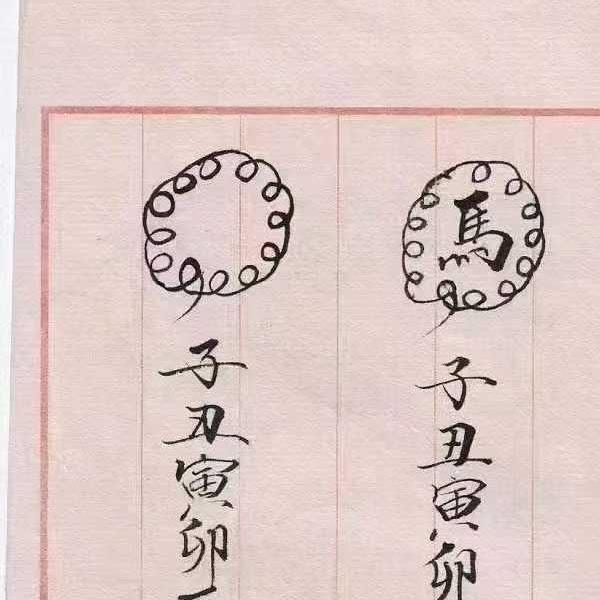 馬
子丑寅卯
子丑寅卯